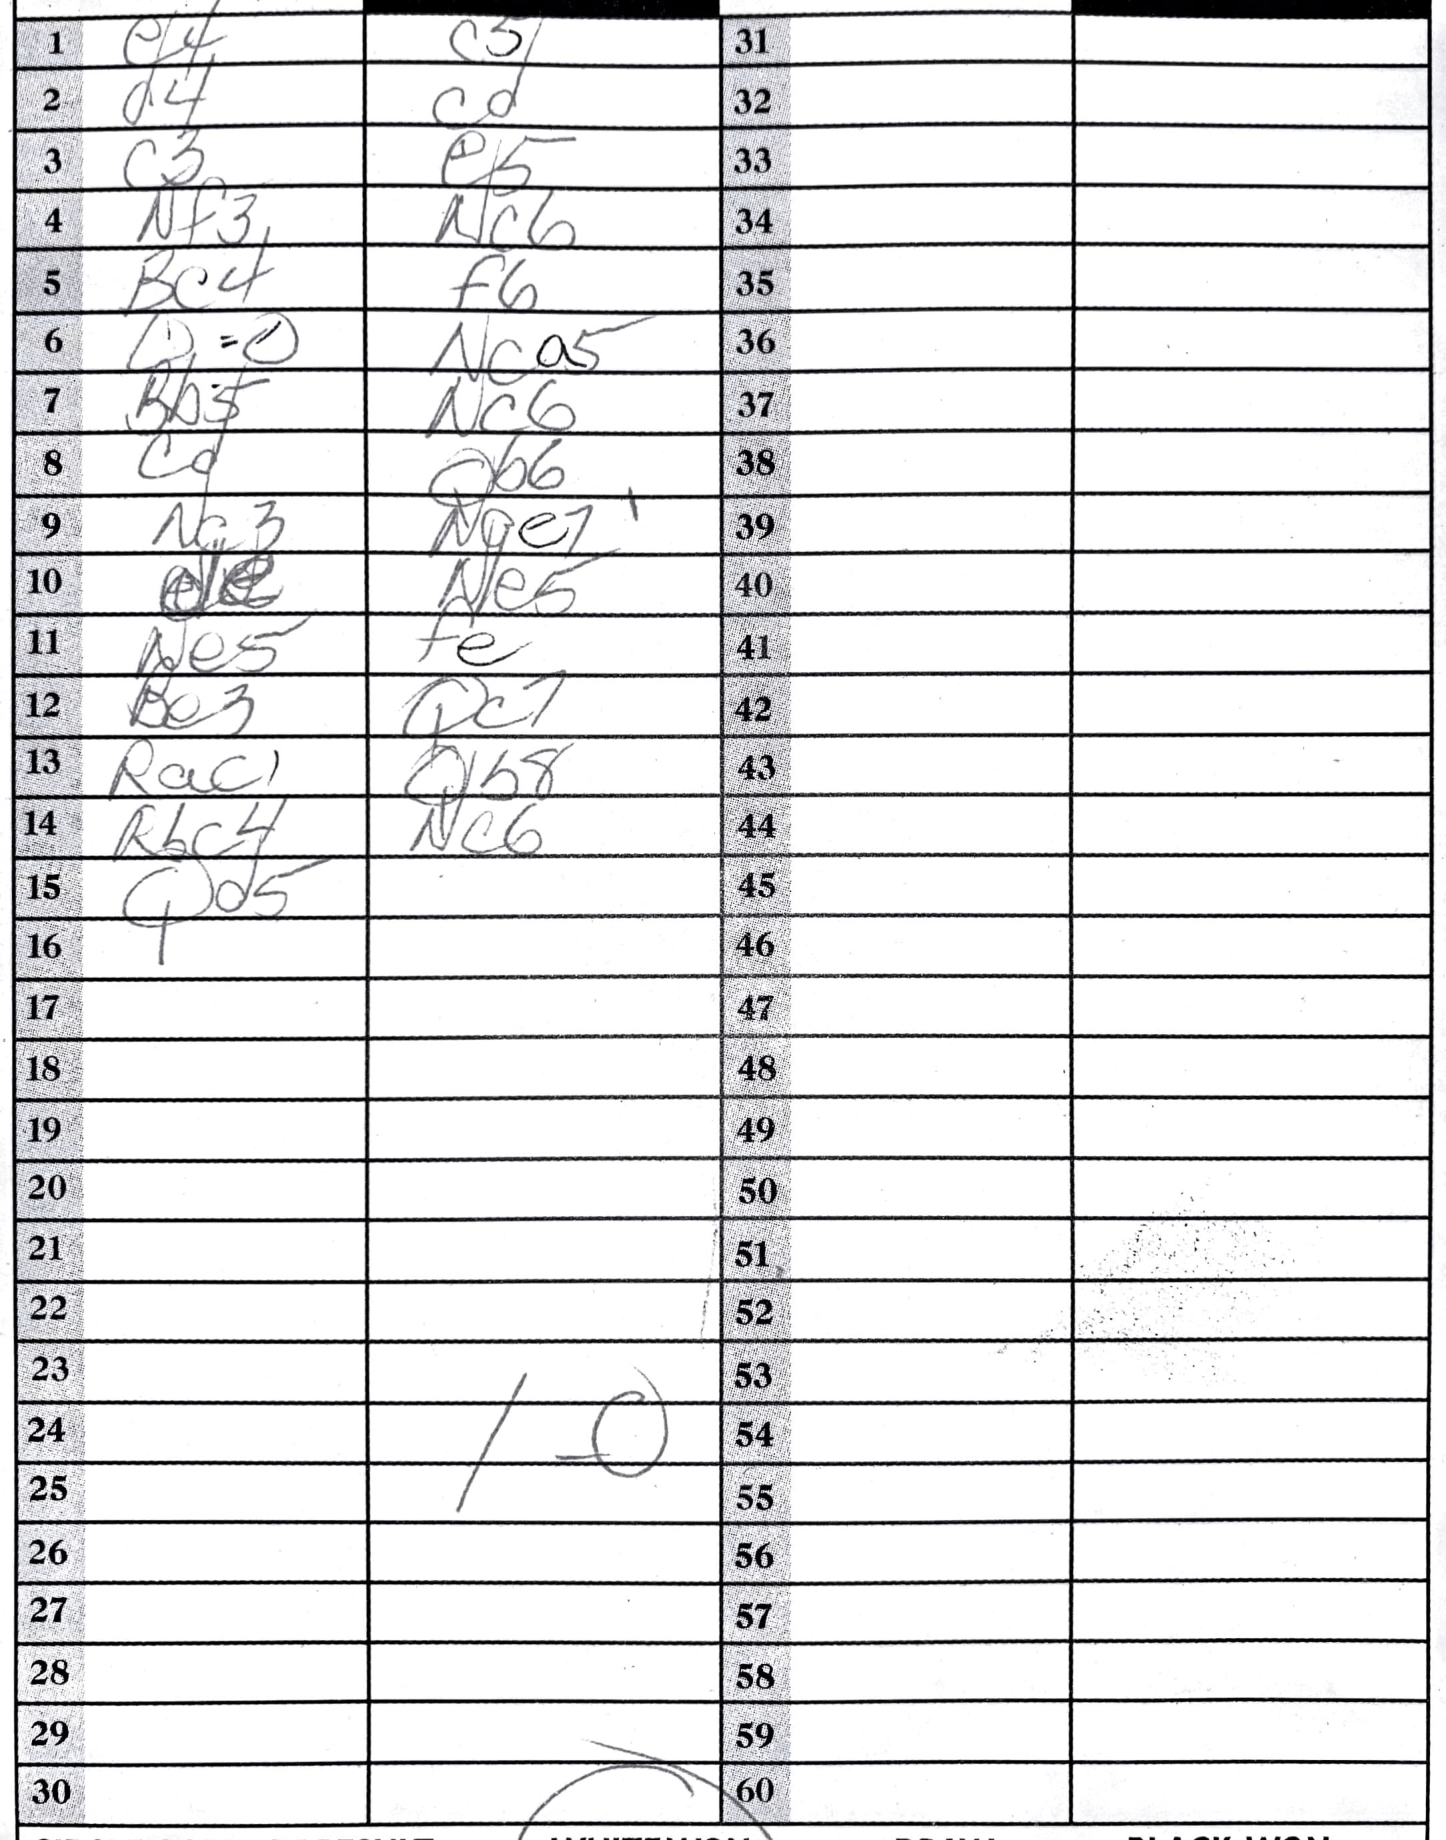 1 e4 c5 31
2 d4 cd 32
3 c3 e5 33
4 Nf3 Nc6 34
5 Bc4 f6 35
6 O=O Nca5 36
7 Bb5 Nc6 37
8 cd Qb6 38
9 Nc3 Nge7 39
10 Ne5 40
11 Ne5 fe 41
12 Be3 Qc7 42
13 Rac1 Qb8 43
14 Nc6 44
15 Qd5 45
16 46
17 47
18 48
19 49
20 50
21 51
22 52
23 53
24 1-0 54
25 55
26 56
27 57
28 58
29 59
30 60